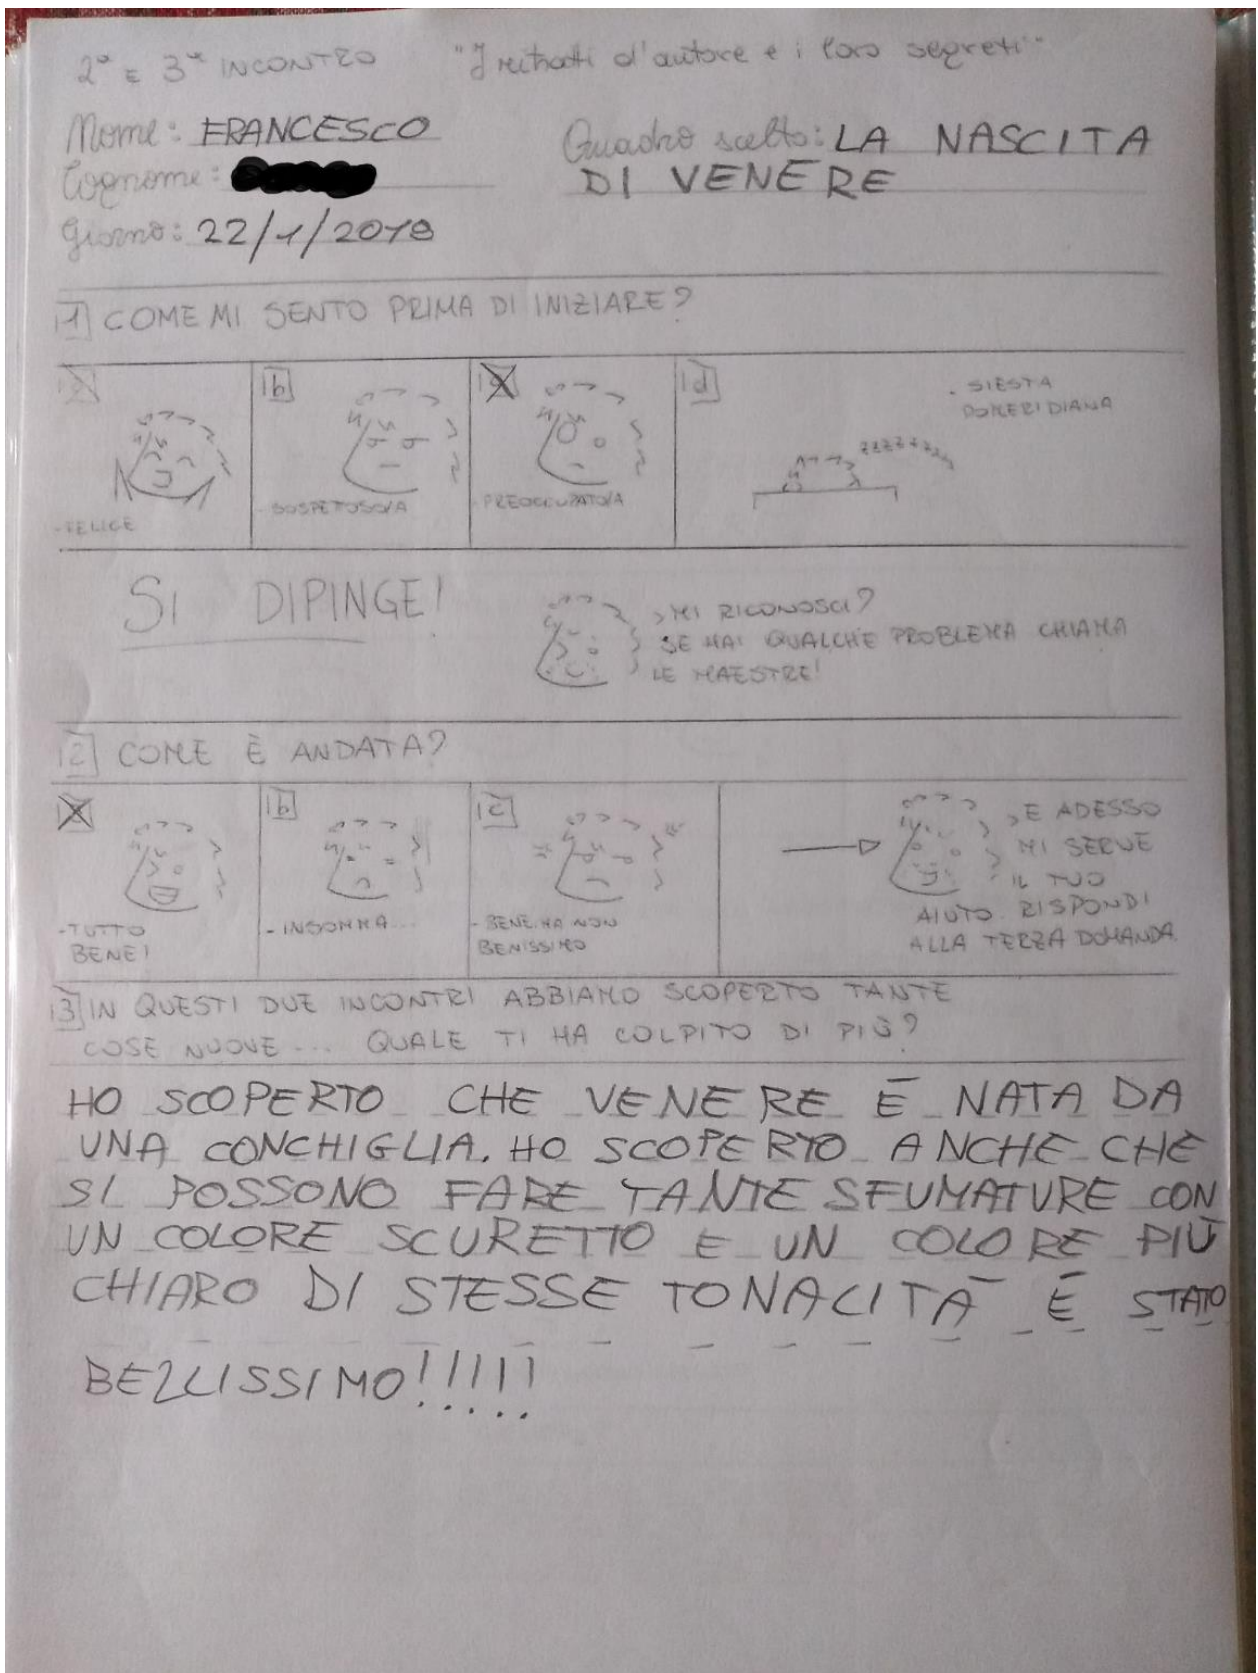 2° E 3° INCONTRO "I ritratti d'autore e i loro segreti"
Nome: FRANCESCO
Quadro scelto: LA NASCITA
Cognome:
DI VENERE
Giorno: 22/1/2018
1 COME MI SENTO PRIMA DI INIZIARE?
a
- FELICE
b
- SOSPETTOSO/A
c
- PREOCCUPATO/A
d
- SIESTA
POMERIDIANA
ZZZZZZZZ
SI DIPINGE!
MI RICONOSCI?
SE HAI QUALCHE PROBLEMA CHIAMA
LE MAESTRE!
2 COME È ANDATA?
- TUTTO
BENE!
b
- INSOMMA...
c
- BENE MA NON
BENISSIMO
E ADESSO
MI SERVE
IL TUO
AIUTO. RISPONDI
ALLA TERZA DOMANDA.
3 IN QUESTI DUE INCONTRI ABBIAMO SCOPERTO TANTE
COSE NUOVE... QUALE TI HA COLPITO DI PIÙ?
HO SCOPERTO CHE VENERE È NATA DA
UNA CONCHIGLIA. HO SCOPERTO ANCHE CHE
SI POSSONO FARE TANTE SFUMATURE CON
UN COLORE SCURETTO E UN COLORE PIÙ
CHIARO DI STESSE TONALITÀ È STATO
BELLISSIMO!!!!!